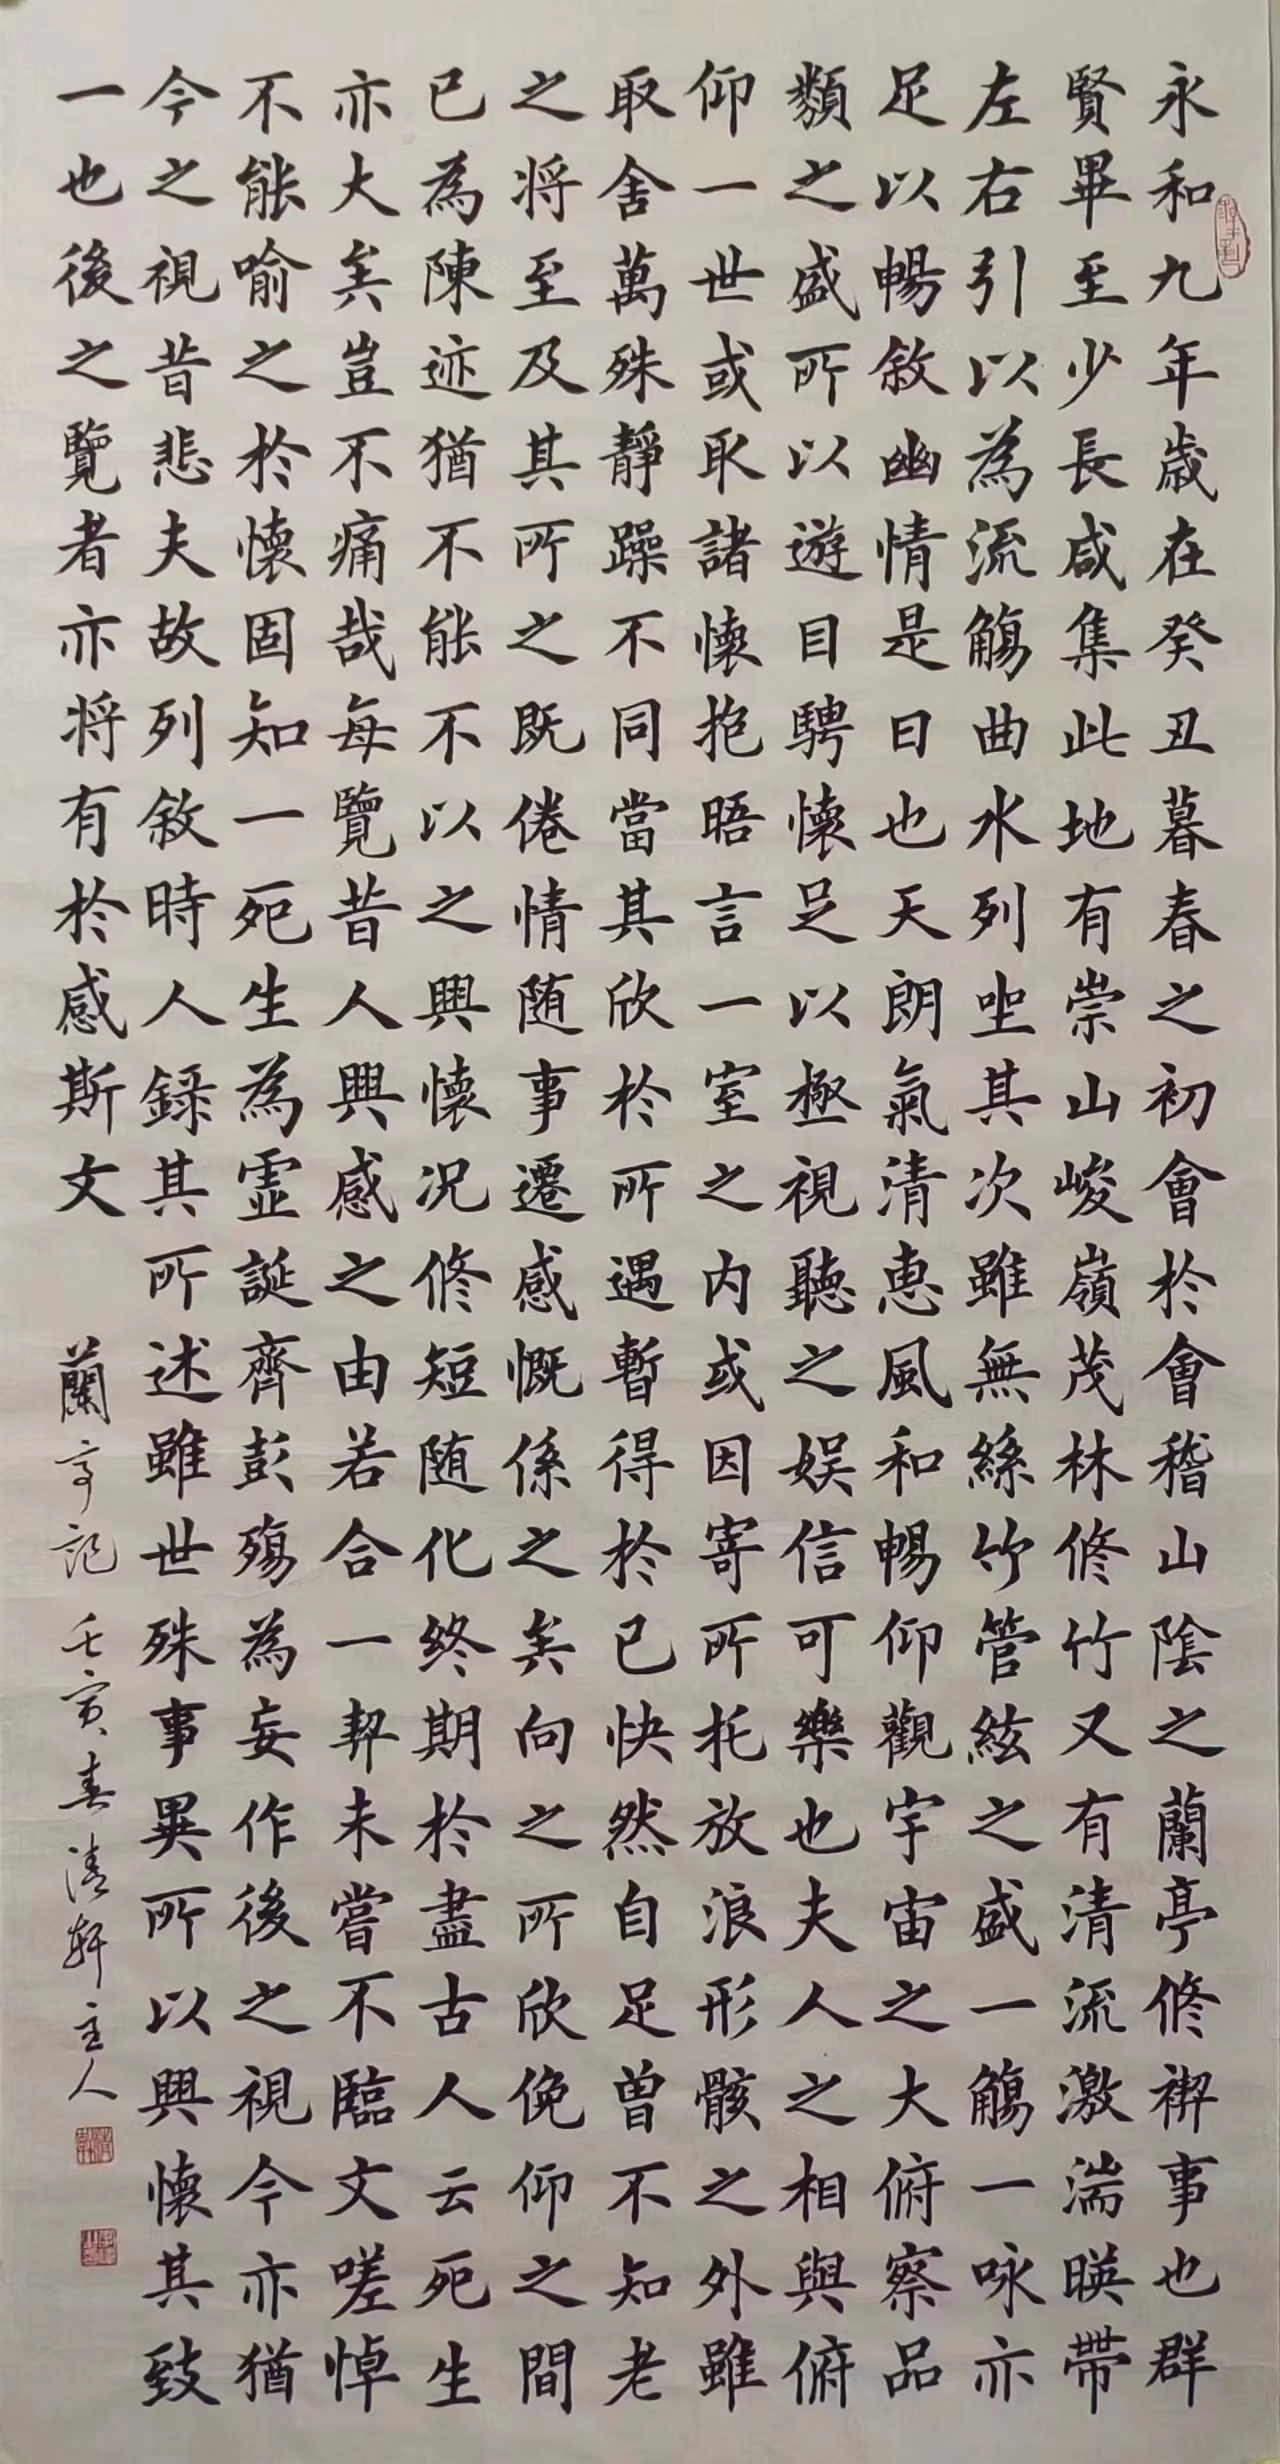 永和九年歲在癸丑暮春之初會於會稽山陰之蘭亭修禊事也群
賢畢至少長咸集此地有崇山峻嶺茂林修竹又有清流激湍暎帶
左右引以為流觴曲水列坐其次雖無絲竹管絃之盛一觴一咏亦
足以暢敘幽情是日也天朗氣清惠風和暢仰觀宇宙之大俯察品
類之盛所以遊目騁懷足以極視聽之娛信可樂也夫人之相與俯
仰一世或取諸懷抱晤言一室之内或因寄所托放浪形骸之外雖
取舍萬殊靜躁不同當其欣於所遇暫得於己快然自足曾不知老
之将至及其所之既倦情随事遷感慨係之矣向之所欣俛仰之間
已為陳迹猶不能不以之興懷况修短随化終期於盡古人云死生
亦大矣豈不痛哉每覽昔人興感之由若合一契未嘗不臨文嗟悼
不能喻之於懷固知一死生為虛誕齊彭殤為妄作後之視今亦猶
今之視昔悲夫故列敘時人錄其所述雖世殊事異所以興懷其致
一也後之覽者亦将有於感斯文 蘭亭記 壬寅春清軒主人